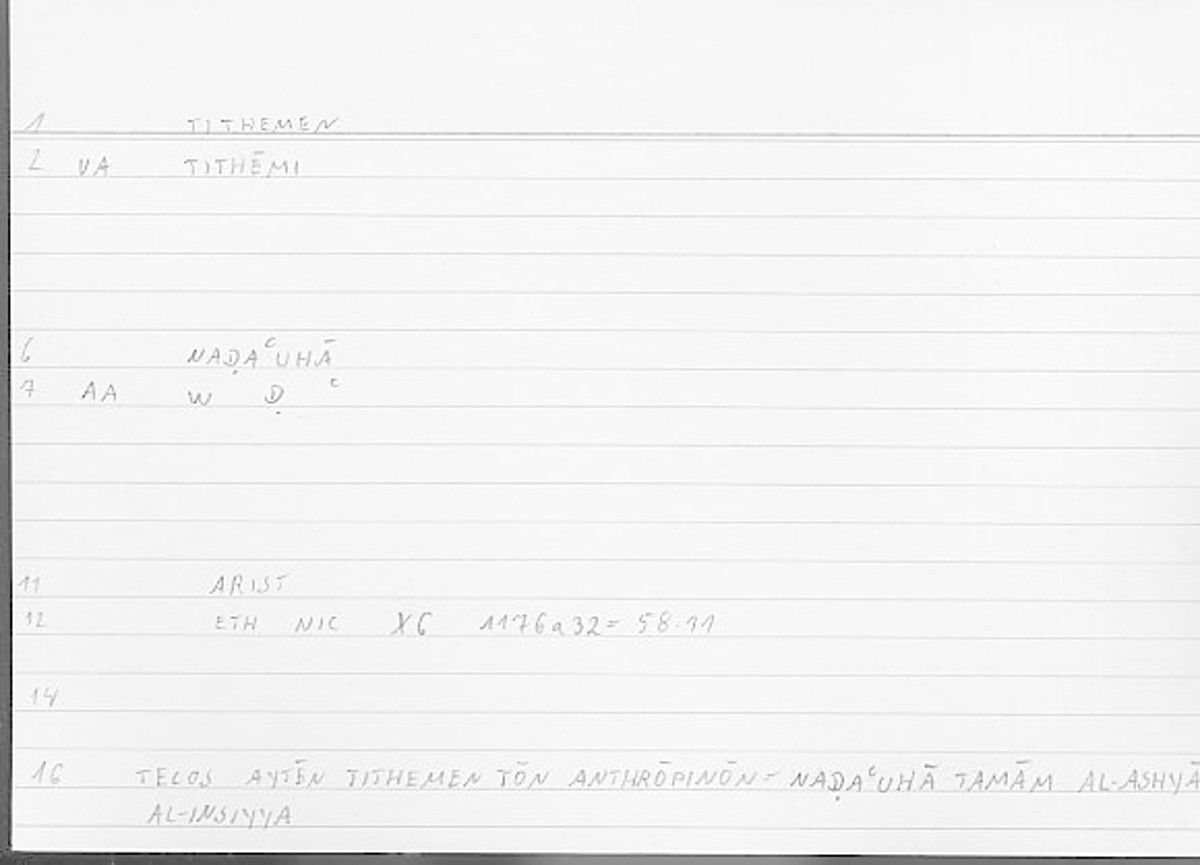 1 TITHEMEN
2 VA TITHĒMI
6 NAḌAʿUHĀ
7 AA W Ḍ ʿ
11 ARIST
12 ETH NIC X6 1176a32= 58.11
14
16 TELOS AYTĒN TITHEMEN TŌN ANTHRŌPINŌN= NAḌAʿUHĀ TAMĀM AL-ASHYĀ
AL-INSIYYA